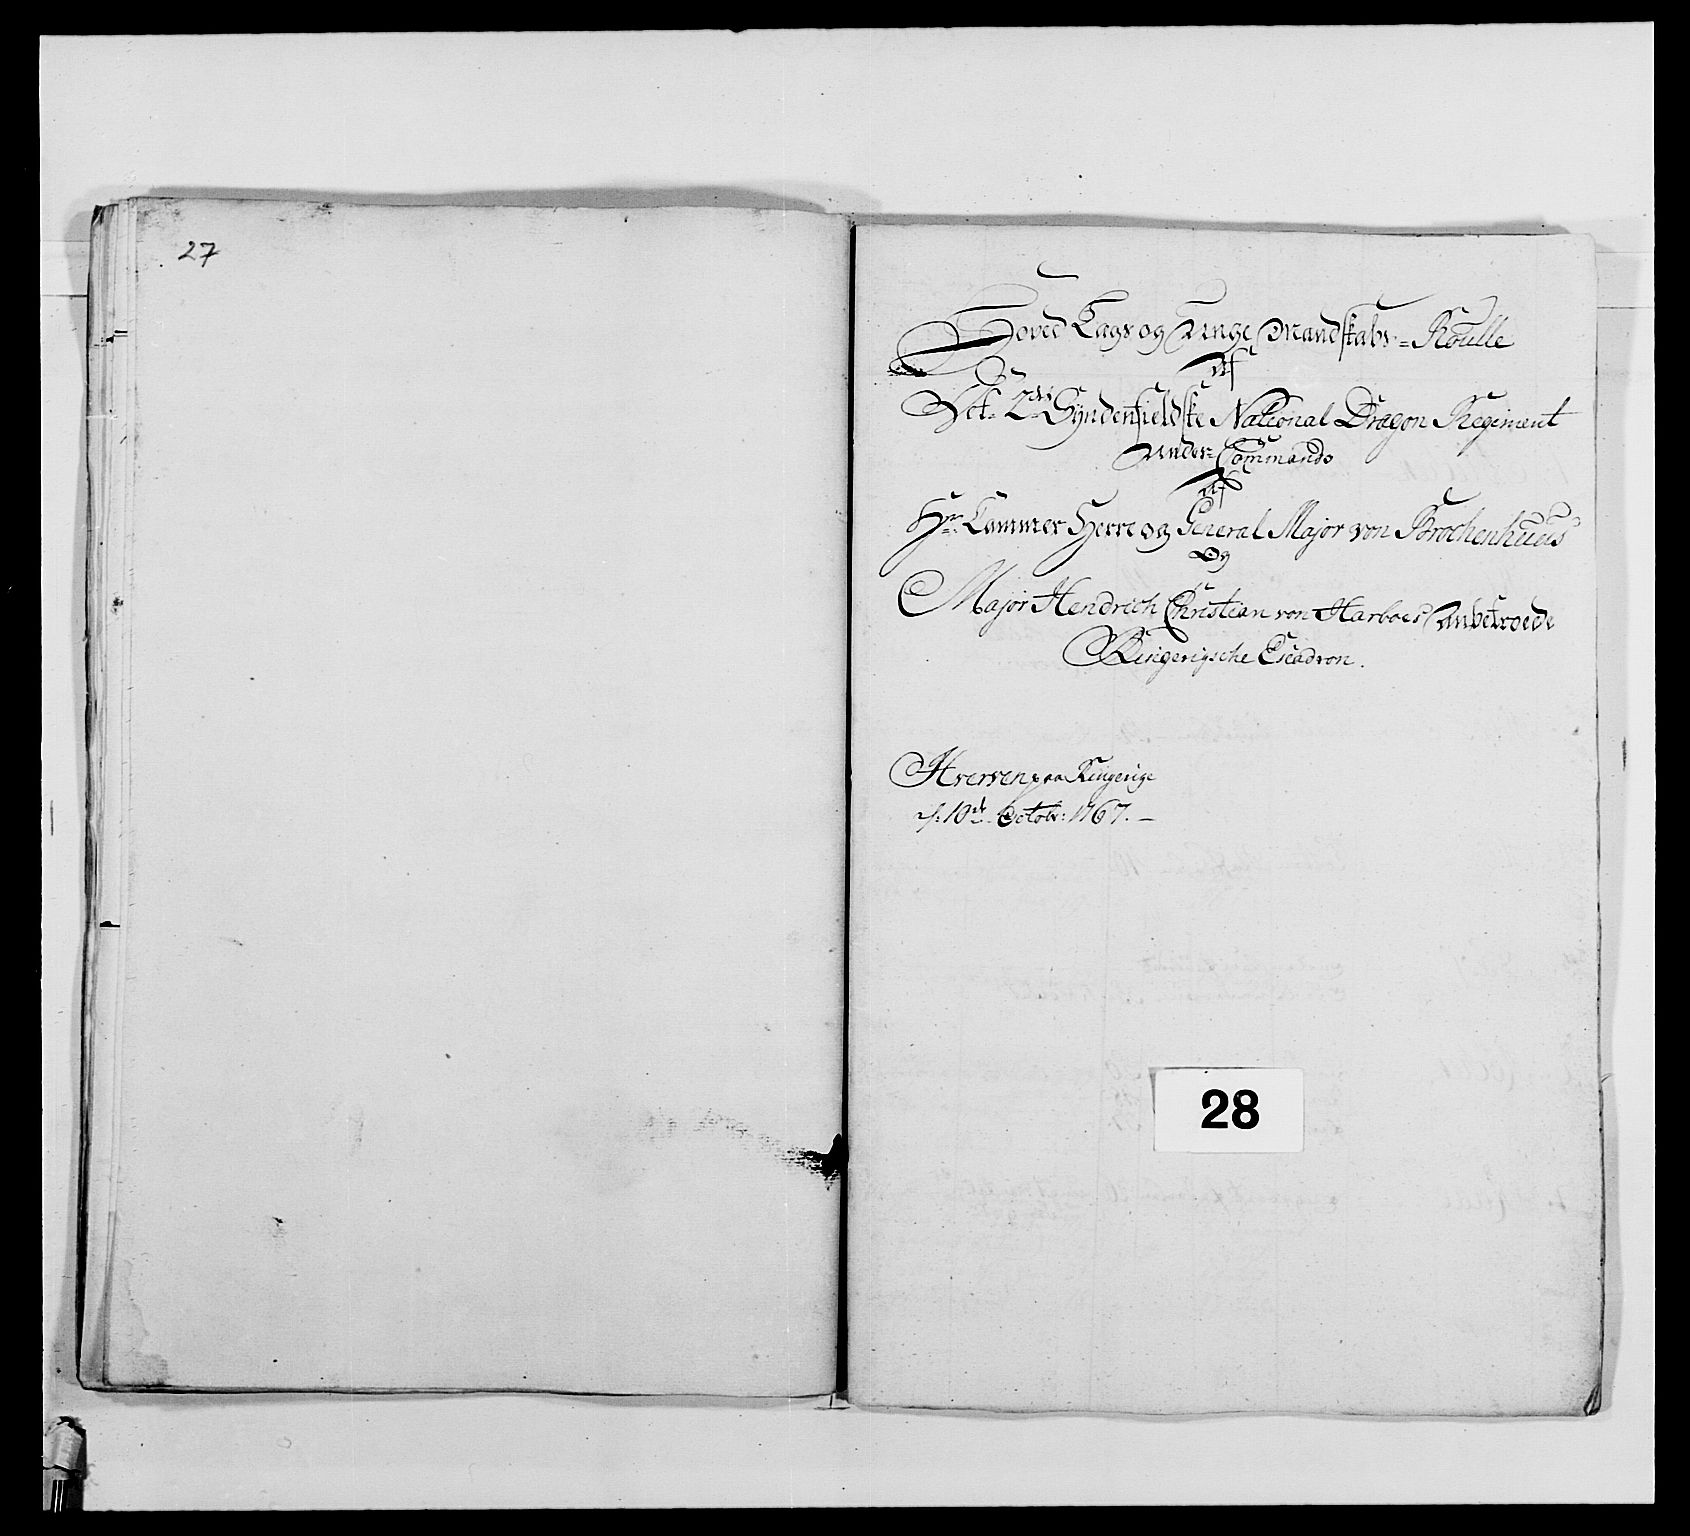 27
Hoved Lags og Unge Mandskabs = Roulle
Af
Det 2det Syndenfieldske National Dragon Regiment
Under Commando
Af
Hr: Cammer Herre og General Major von Brochenhuus
Og
Major Hendrich Christian von Harboes Anbetroede
Ringerigsche Escadron.
Hverven paa Ringerige
d: 10de Octobr: 1767. –
28